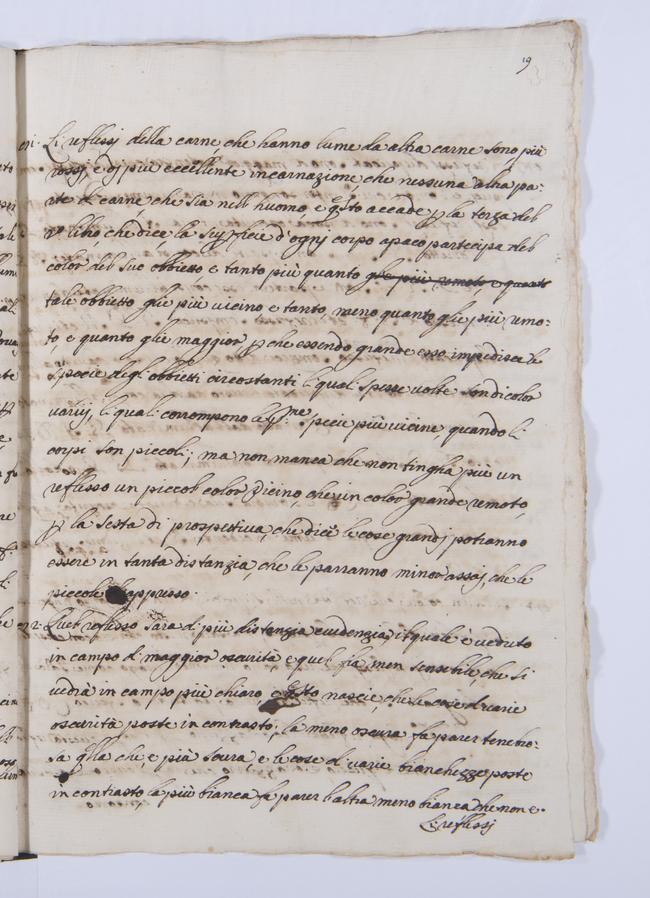 19
Li reflessi della carne, che hanno lume da altra carne sono più
rossi, e di più eccellente incarnazione, che nessuna altra pa:
rte di carne, che sia nell'huomo, e qsto accade p la terza del
libro che dice, la supficie d'ogni corpo apaco partecipa del
color del suo obbietto e tanto più quanto glie più remoto e quanto
tale obbietto glie più vicino e tanto, meno quanto glie più remo:
to, e quanto glie maggior p che essendo grande esso impedisce le
specie degli obbietti circostanti, li quali spesse volte son di color
varij, li quali corrompono le pme spicie più vicine, quando li
corpi son piccoli; ma non manca che non tingha più un
reflesso un piccol color vicino, che un color grande remoto,
p la sesta di prospettiva, che dice le cose grandi potranno
essere in tanta distanzia, che le parranno minor assaj, che le
piccole dappresso.
Quel reflesso sarà di più distanzia euidenzia, il quale è ueduto
in campo di maggior oscurità e quel fia men sensibile, che si
uedrà in campo più chiaro e qsto nascie, che le cose di varie
oscurità poste in contrasto, la meno oscura fa parer tenebro:
sa qlla che, e più scura, e le cose di uarie bianchezze poste
in contrasto, la più bianca fa parer l'altra meno bianca che non e.
Li reflessi